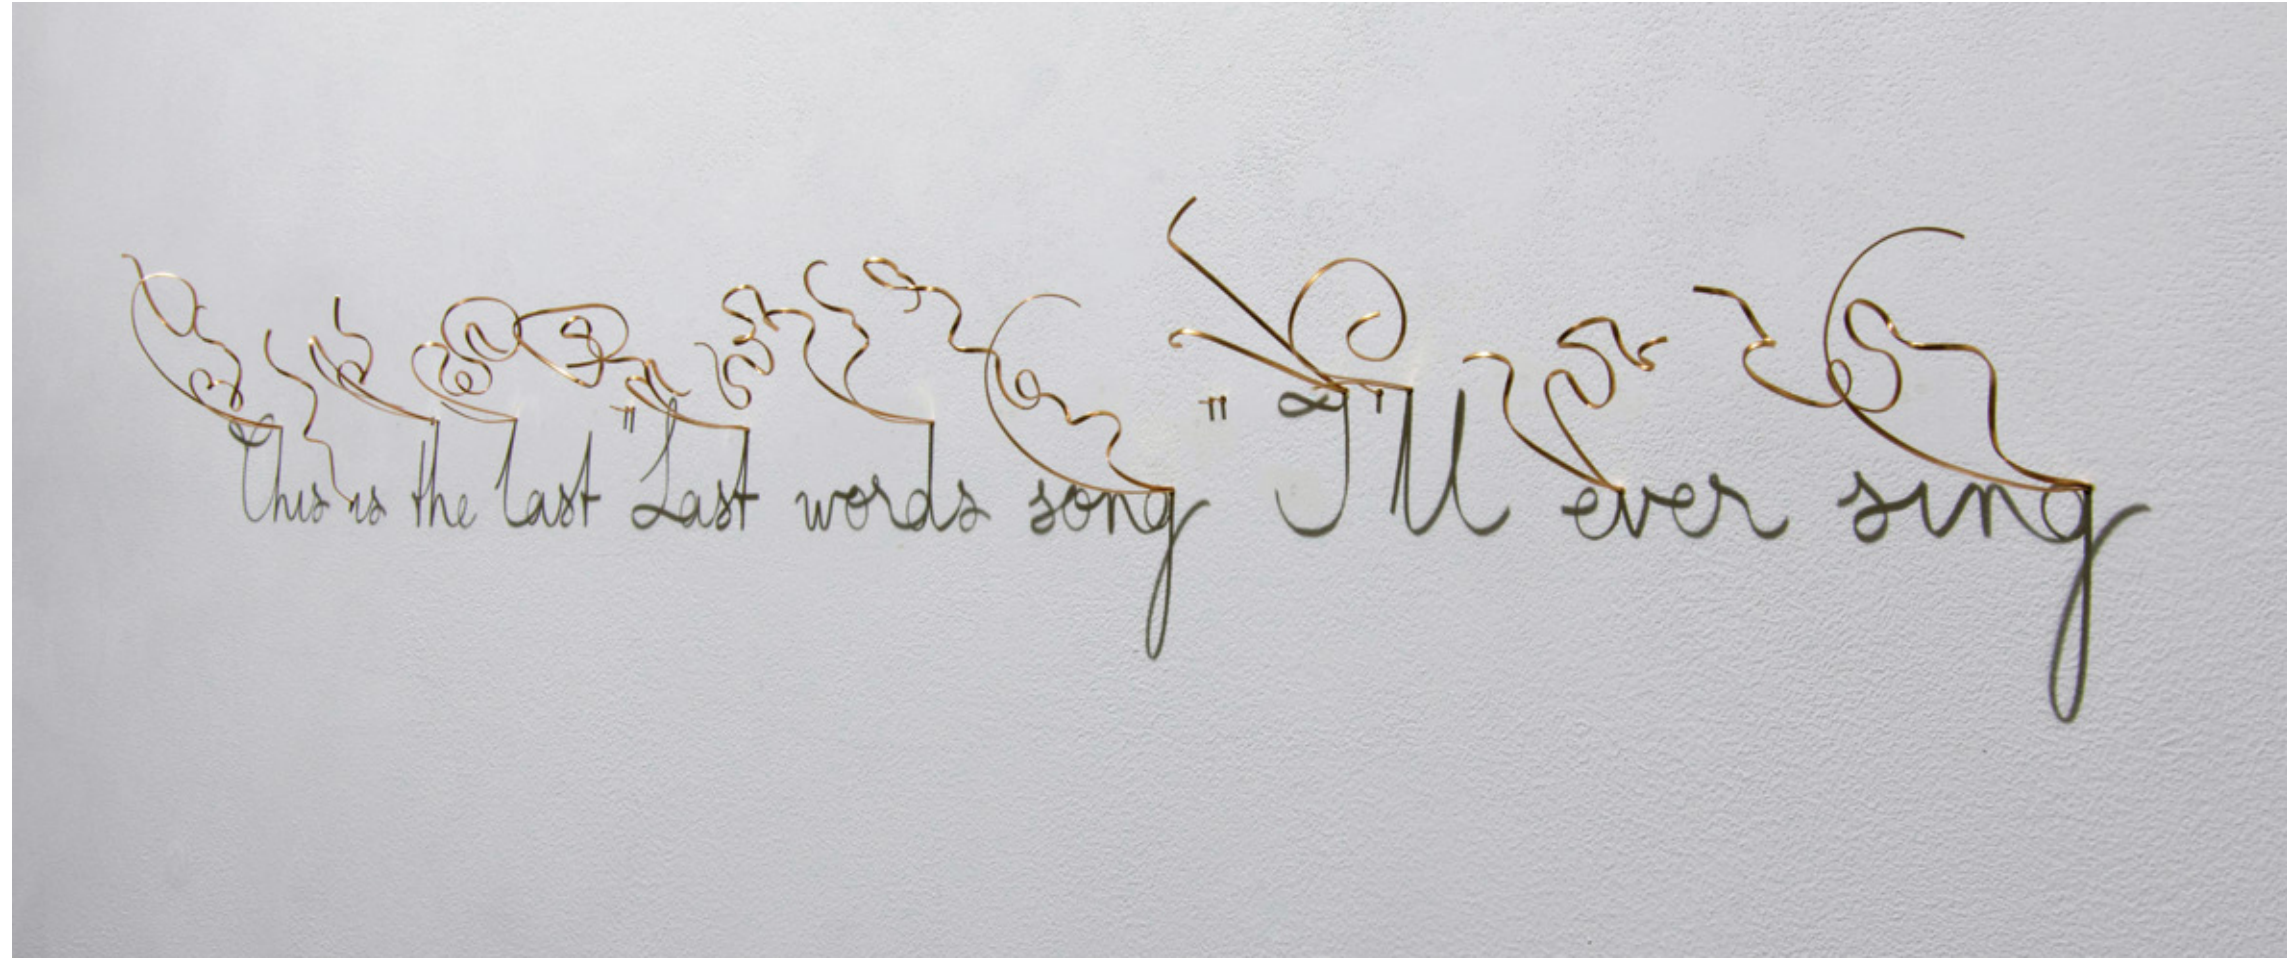 This is the last "Last words song" I'll ever sing